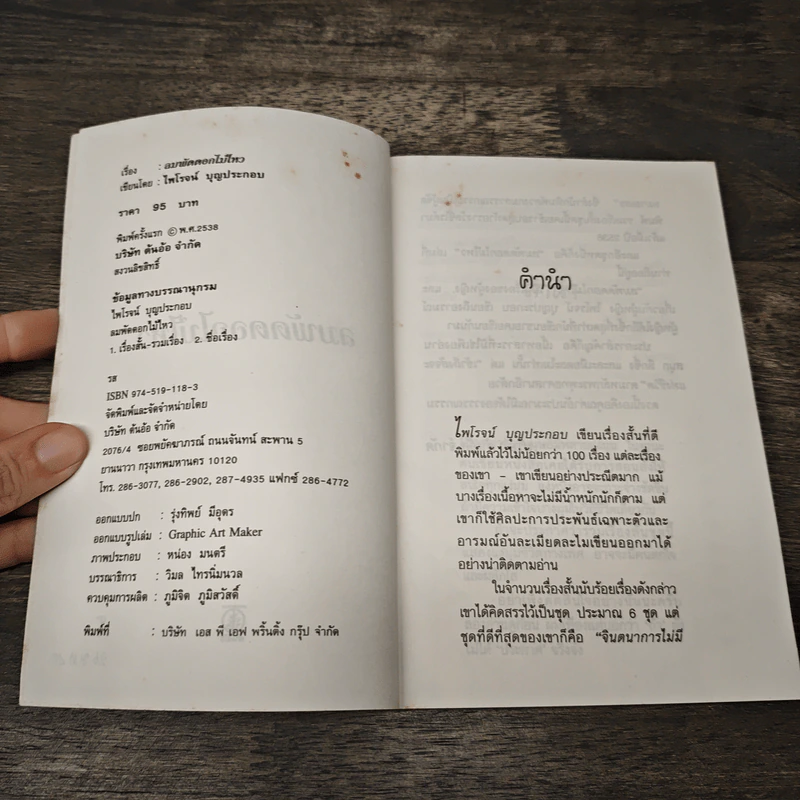 เรื่อง : ลมพัดดอกไม้ไหว
เขียนโดย : ไพโรจน์ บุญประกอบ
ราคา 95 บาท
พิมพ์ครั้งแรก © พ.ศ.2538
บริษัท ต้นอ้อ จำกัด
สงวนลิขสิทธิ์
ข้อมูลทางบรรณานุกรม
ไพโรจน์ บุญประกอบ
ลมพัดดอกไม้ไหว
1. เรื่องสั้น-รวมเรื่อง 2. ชื่อเรื่อง
รส
ISBN 974-519-118-3
จัดพิมพ์และจัดจำหน่ายโดย
บริษัท ต้นอ้อ จำกัด
2076/4 ซอยพยัคฆาภรณ์ ถนนจันทน์ สะพาน 5
ยานนาวา กรุงเทพมหานคร 10120
โทร. 286-3077, 286-2902, 287-4935 แฟกซ์ 286-4772
ออกแบบปก : รุ่งทิพย์ มีอุดร
ออกแบบรูปเล่ม : Graphic Art Maker
ภาพประกอบ : หน่อง มนตรี
บรรณาธิการ : วิมล ไทรนิ่มนวล
ควบคุมการผลิต : ภูมิจิต ภูมิสวัสดิ์
พิมพ์ที่ : บริษัท เอส พี เอฟ พริ้นติ้ง กรุ๊ป จำกัด
คำนำ
ไพโรจน์ บุญประกอบ เขียนเรื่องสั้นที่ตี
พิมพ์แล้วไว้ไม่น้อยกว่า 100 เรื่อง แต่ละเรื่อง
ของเขา - เขาเขียนอย่างประณีตมาก แม้
บางเรื่องเนื้อหาจะไม่มีน้ำหนักนักก็ตาม แต่
เขาก็ใช้ศิลปะการประพันธ์เฉพาะตัวและ
อารมณ์อันละเมียดละไมเขียนออกมาได้
อย่างน่าติดตามอ่าน
ในจำนวนเรื่องสั้นนับร้อยเรื่องดังกล่าว
เขาได้คิดสรรไว้เป็นชุด ประมาณ 6 ชุด แต่
ชุดที่ดีที่สุดของเขาก็คือ "จินตนาการไม่มี